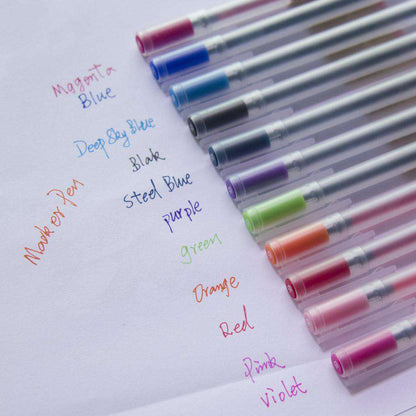 Magenta
Blue
Deep Sky Blue
Blak
Steel Blue
Marker Pen
purple
green
Orange
Red
Pink
Violet